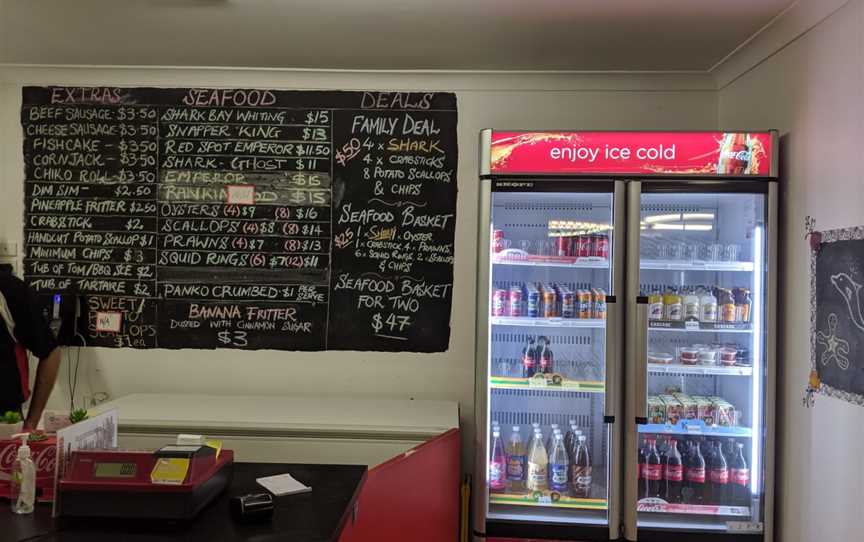 EXTRAS
BEEF SAUSAGE $3.50
CHEESE SAUSAGE $3.50
FISHCAKE - $3.50
CORNJACK - $3.50
CHIKO ROLL - $3.50
DIM SIM - $2.50
PINEAPPLE FRITTER $2.50
CRABSTICK $2
HANDCUT POTATO SCALLOP $1
MINIMUM CHIPS $3
TUB OF TOM/BBQ SCE $2
TUB OF TARTARE $2
SWEET
SCALLOPS
N/A
$1 ea
SEAFOOD
SHARK BAY WHITING $15
SNAPPER KING $13
RED SPOT EMPEROR $11.50
SHARK - GHOST $11
EMPEROR $15
RANKIN $15
OYSTERS (4) $9 (8) $16
SCALLOPS (4) $8 (8) $14
PRAWNS (4) $7 (8) $13
SQUID RINGS (6) $7 (12) $11
PANKO CRUMBED $1 PER SERVE
BANANA FRITTER
DUSTED WITH CINNAMON SUGAR
$3
DEALS
FAMILY DEAL
$50
4 x SHARK
4 x CRABSTICKS
8 POTATO SCALLOPS
& CHIPS
SEAFOOD BASKET
$25
1 x SHARK, 1. OYSTER
1 x CRABSTICK 4 x PRAWNS,
6 x SQUID RINGS 2 x SCALLOPS
& CHIPS
SEAFOOD BASKET
FOR TWO
$47
enjoy ice cold
Coca-Cola